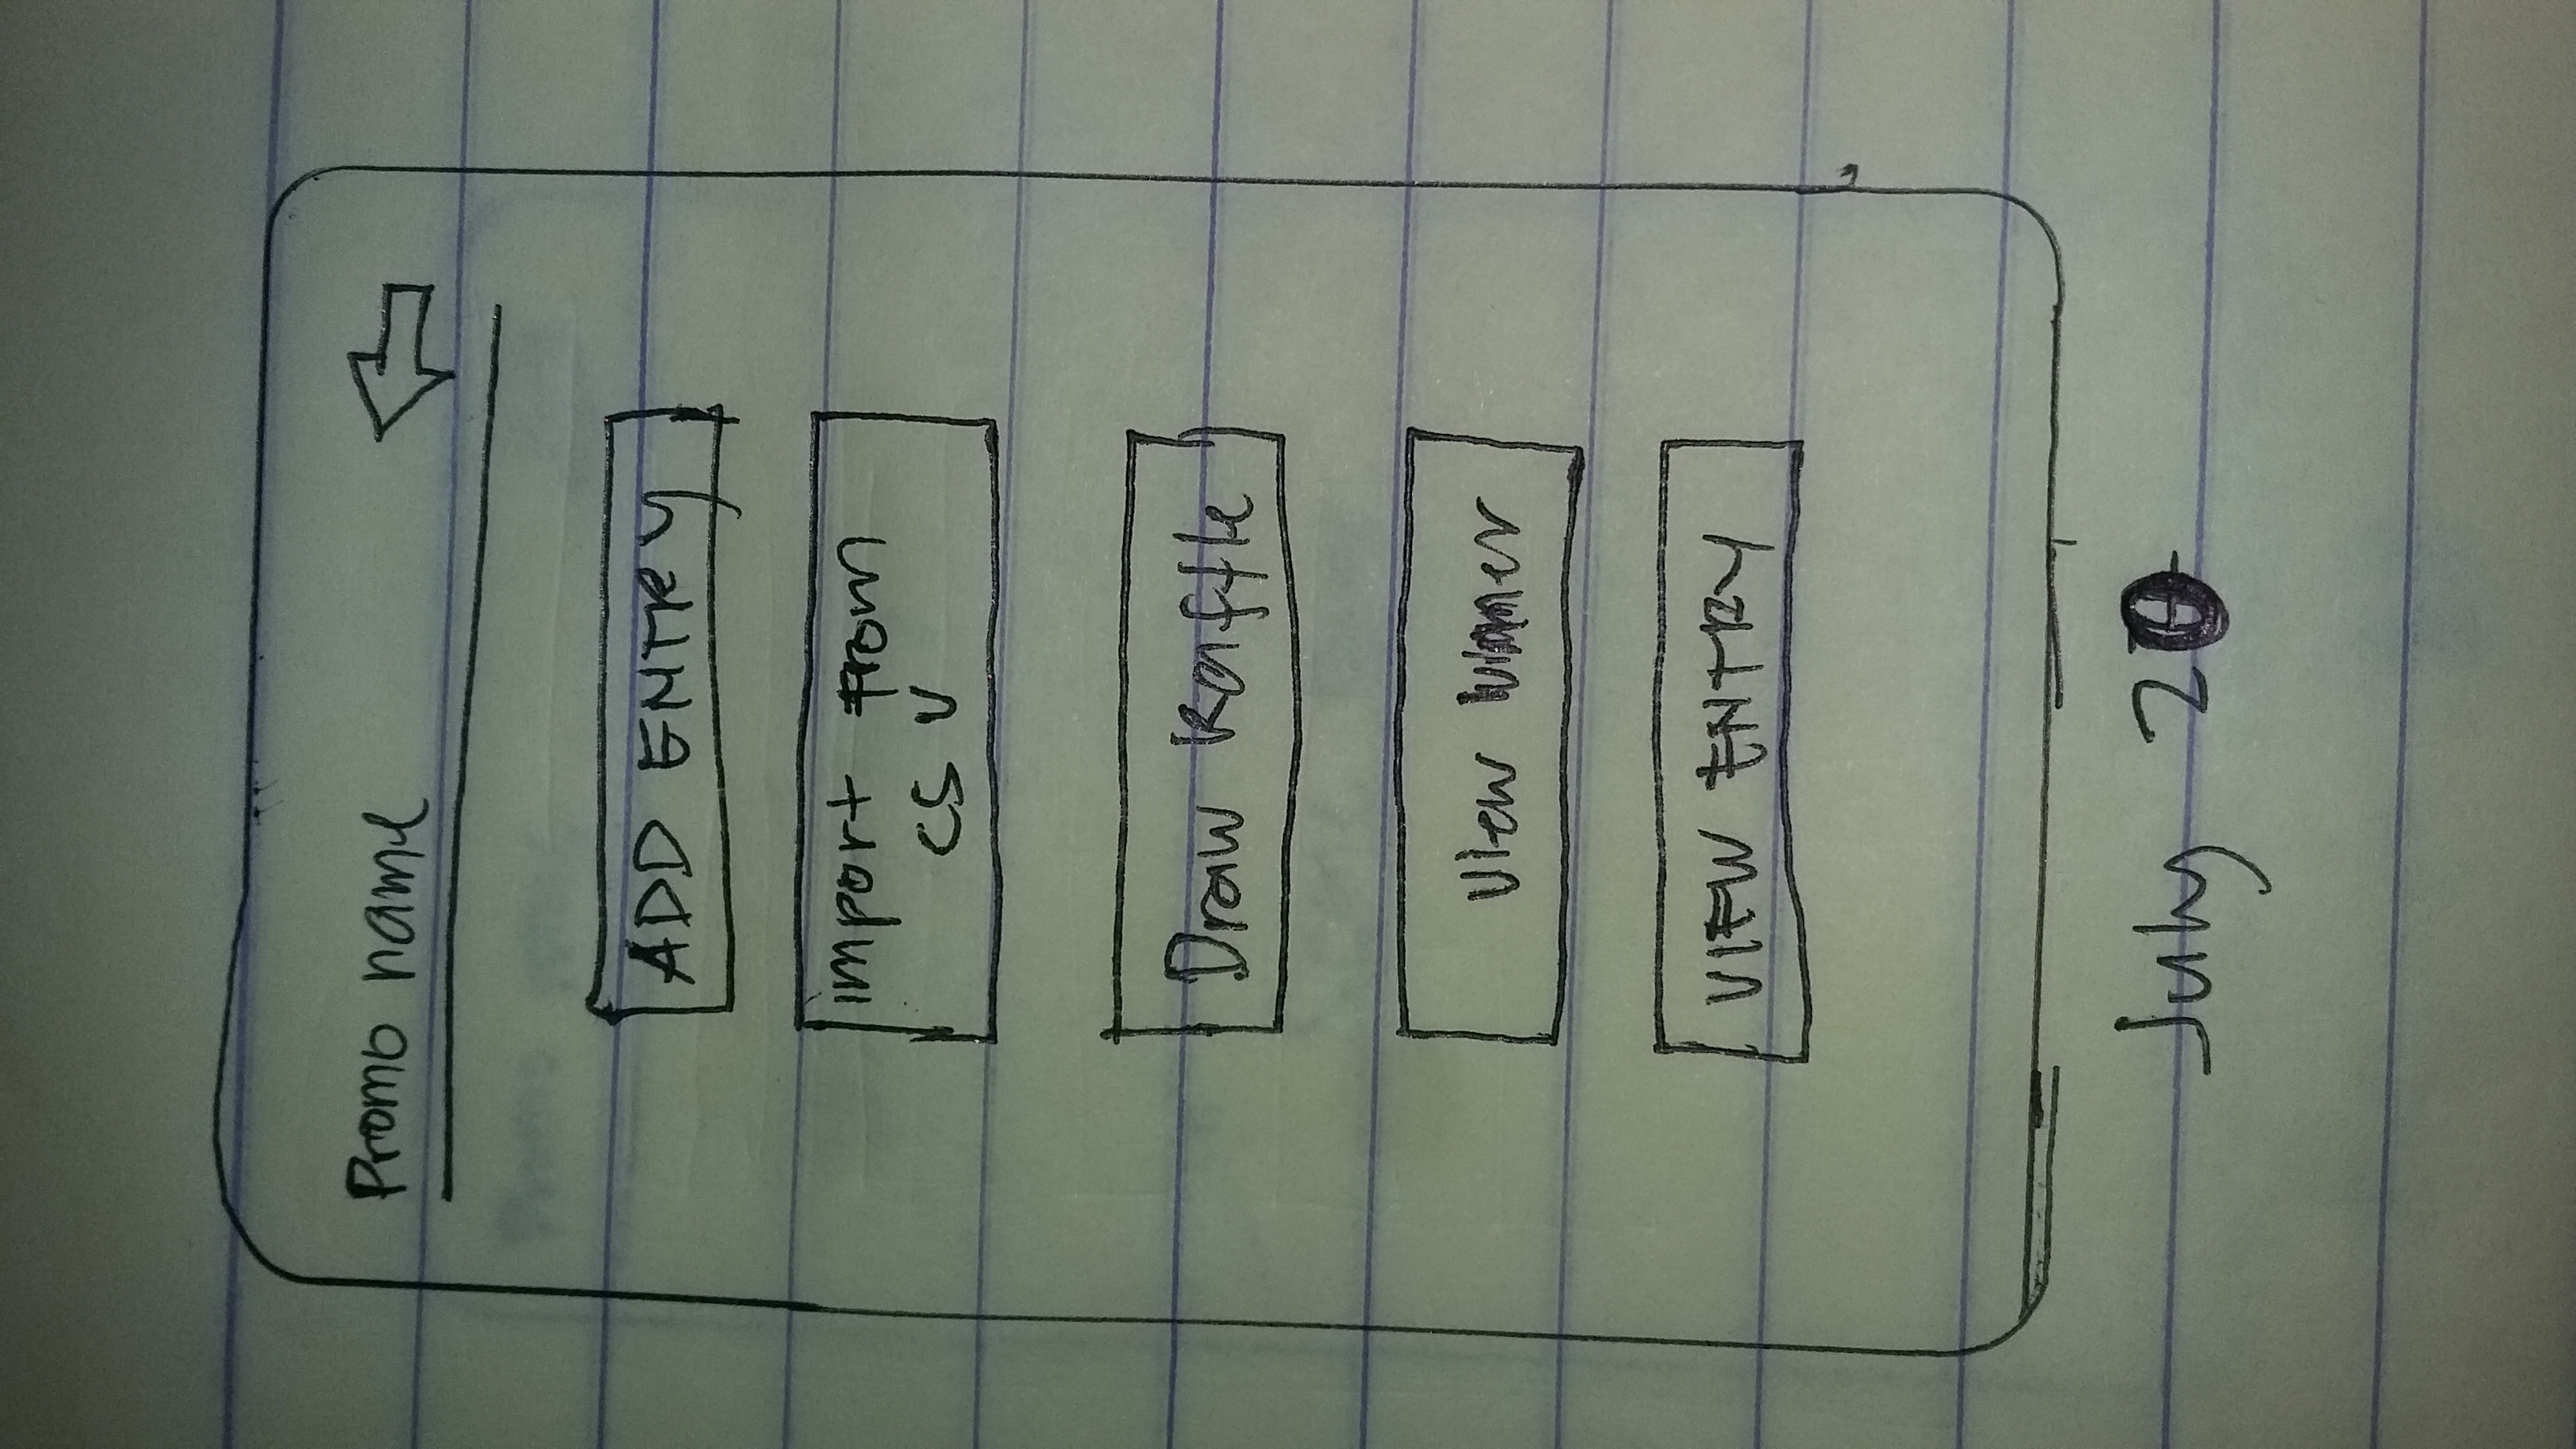 Promo name
ADD ENTRY
import from
CSV
Draw Raffle
View Winner
VIEW ENTRY
July 20